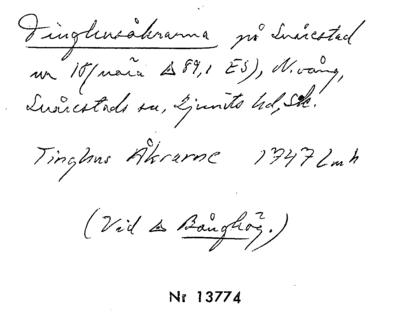 Tinghusåkrarna på Svärestad
nr 18/nära △ 89,1 ES), N. vång,
Svärestads sn, Ljunits hd, Sk.
Tinghus Åkrarne 1747 Lmh
(Vid △ Bånghög.)
Nr 13774